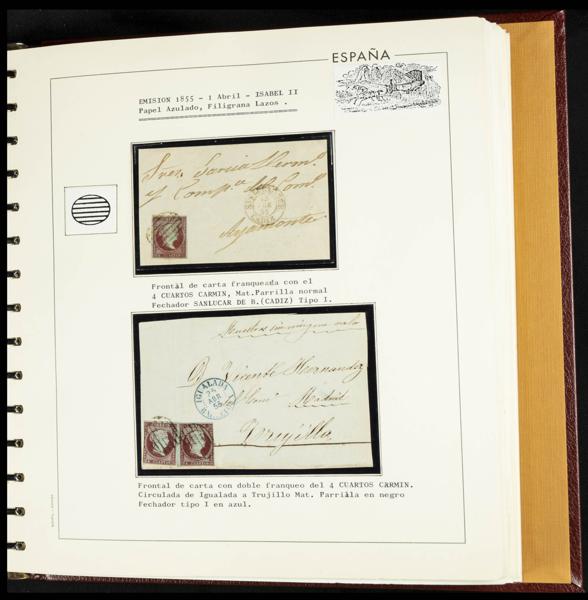 ESPAÑA
EMISION 1855 - 1 Abril - ISABEL II
Papel Azulado, Filigrana Lazos .
Sres. Garcia Herm.ª
y Comp.ª del Com.º
Ayamonte
Frontal de carta franqueada con el
4 CUARTOS CARMIN, Mat.Parrilla normal
Fechador SANLUCAR DE B.(CADIZ) Tipo I.
Muestras sin ningun valor
D. Vicente Hernandez
del Com.º Madrid
Trugillo
IGUALADA
ABR
55
Frontal de carta con doble franqueo del 4 CUARTOS CARMIN.
Circulada de Igualada a Trujillo Mat. Parrilla en negro
Fechador tipo I en azul.